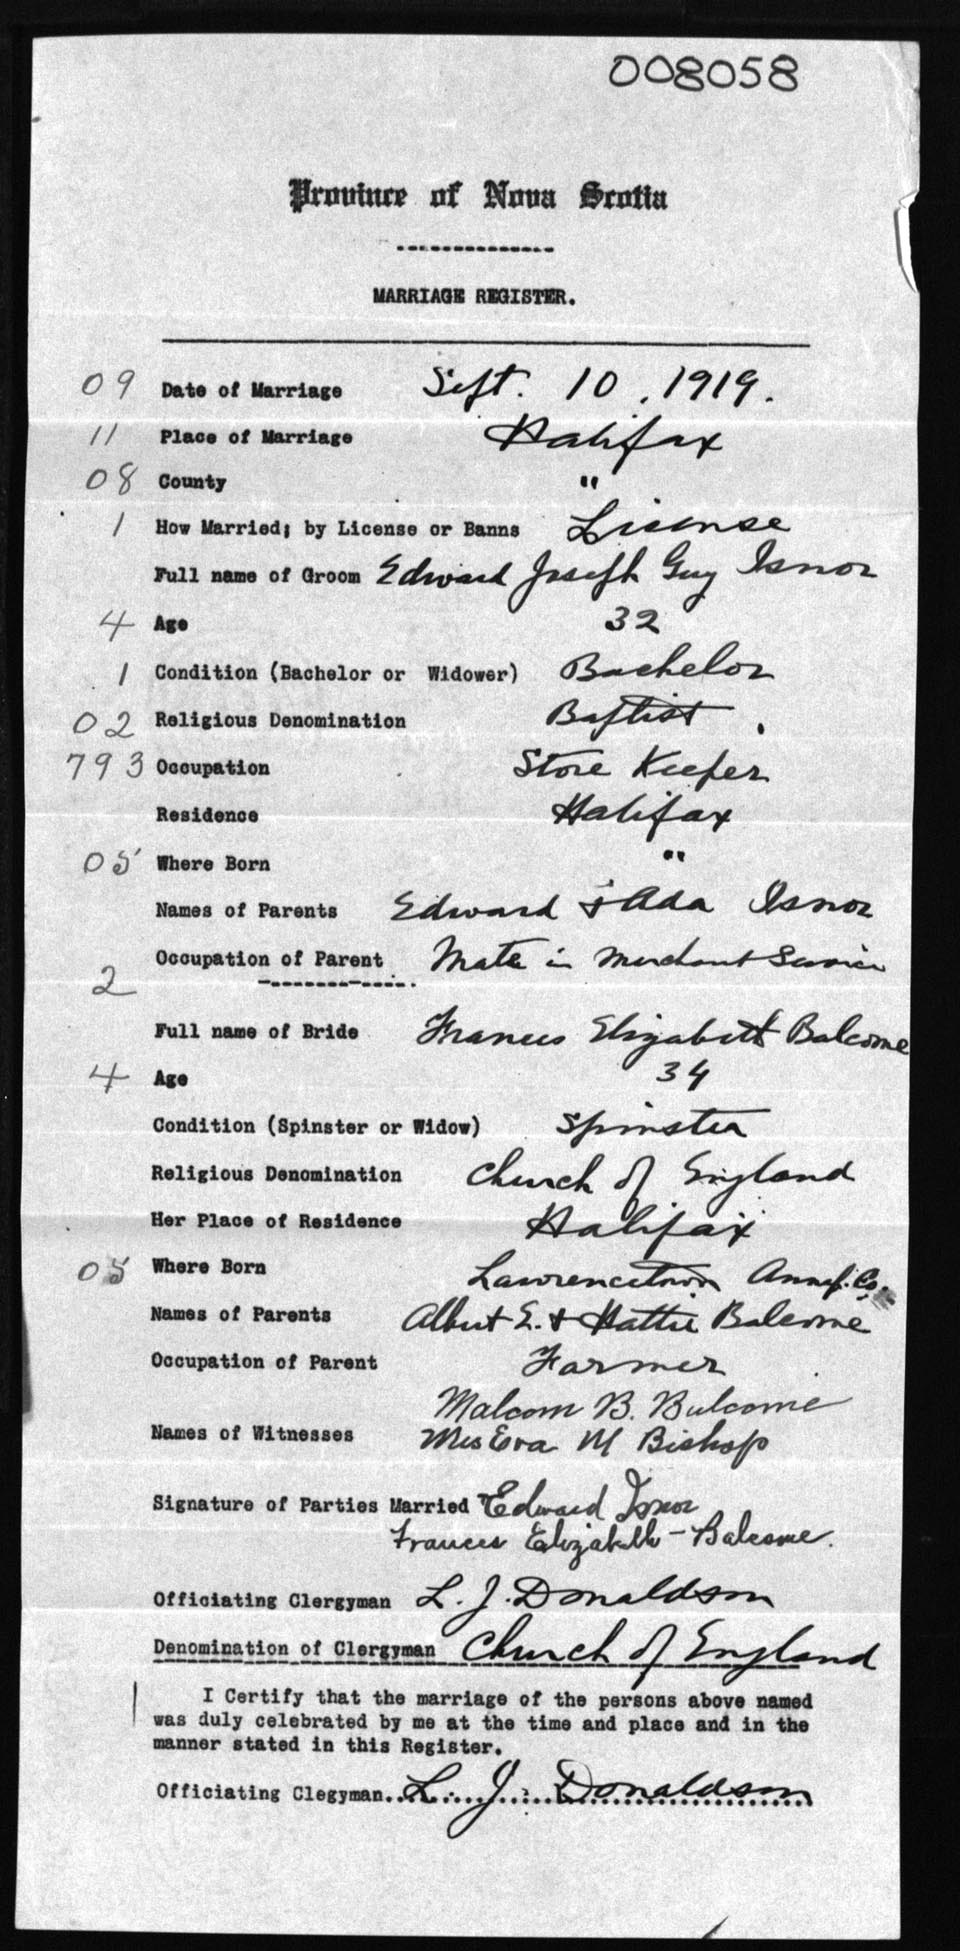 008058
Province of Nova Scotia
MARRIAGE REGISTER.
09 Date of Marriage Sept. 10, 1919.
11 Place of Marriage Halifax
08 County "
1 How Married; by License or Banns License
Full name of Groom Edward Joseph Guy Isnor
4 Age 32
1 Condition (Bachelor or Widower) Bachelor
02 Religious Denomination Baptist
793 Occupation Store Keeper
Residence Halifax
05 Where Born "
Names of Parents Edward & Ada Isnor
Occupation of Parent Mate in Merchant Service
2
Full name of Bride Frances Elizabeth Balcome
4 Age 34
Condition (Spinster or Widow) Spinster
Religious Denomination Church of England
Her Place of Residence Halifax
05 Where Born Lawrencetown Annap. Co.
Names of Parents Albert E. & Hattie Balcome
Occupation of Parent Farmer
Malcom B. Balcome
Names of Witnesses Mrs Eva M Bishop
Signature of Parties Married Edward Isnor
Frances Elizabeth - Balcome.
Officiating Clergyman L. J. Donaldson
Denomination of Clergyman Church of England
I Certify that the marriage of the persons above named
was duly celebrated by me at the time and place and in the
manner stated in this Register.
Officiating Clegyman..L. J. Donaldson